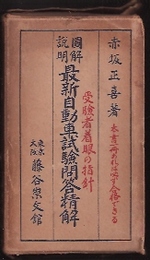 赤坂正喜著
本書一冊あれば必ず合格できる
受験者着眼の指針
図解
説明
最新自動車試驗問答精解
東京
大阪
藤谷崇文館